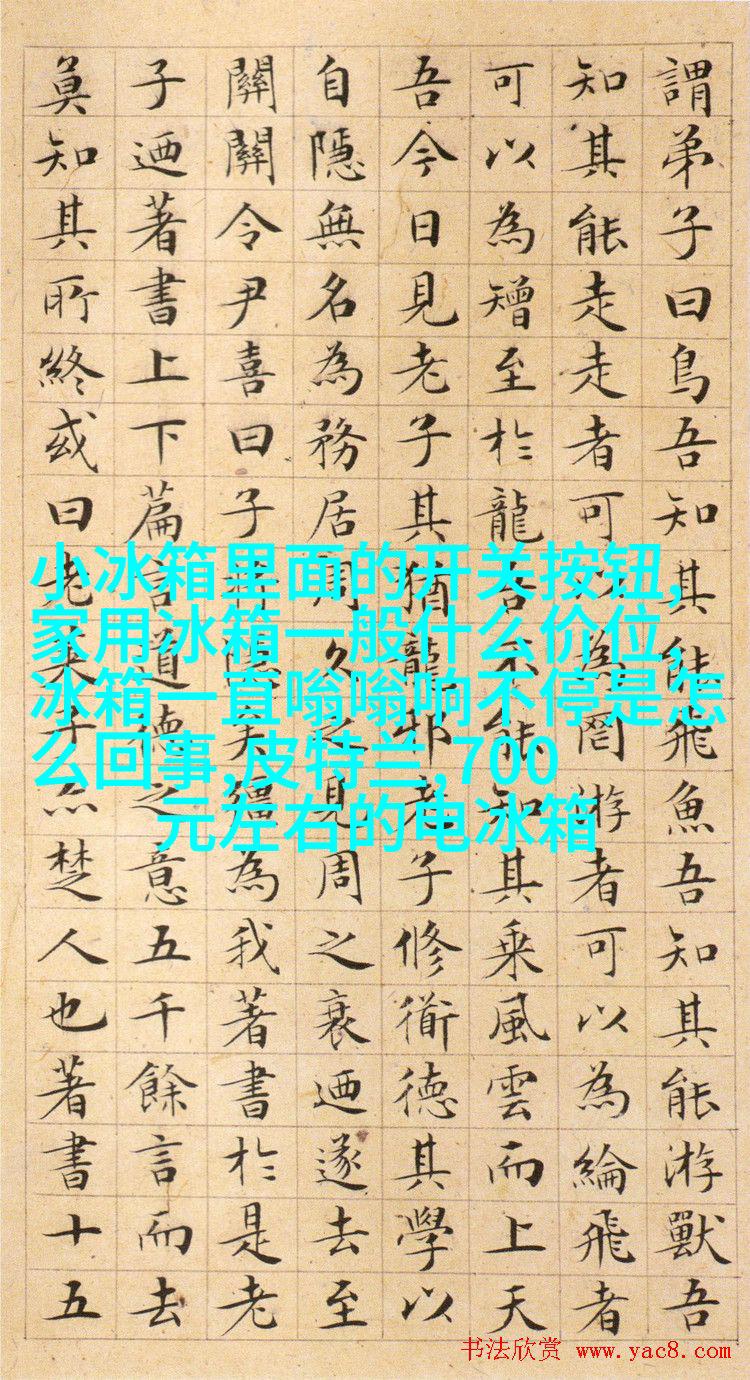 謂弟子曰鳥吾知其能飛魚吾知其能游獸吾
知其能走走者可以為罔游者可以為綸飛者
可以為矰至於龍吾不能知其乘風雲而上天
吾今日見老子其猶龍邪老子修衜德其學以
自隱無名為務居周久之見周之衰迺遂去至
關關令尹喜曰子將隱矣彊為我著書於是老
子迺著書上下篇言道德之意五千餘言而去
莫知其所終或曰老萊子亦楚人也著書十五
小冰箱里面的开关按钮,
家用冰箱一般什么价位,
冰箱一直嗡嗡响不停是怎
么回事,皮特兰,700
元左右的电冰箱
书法欣赏 www.yac8.com